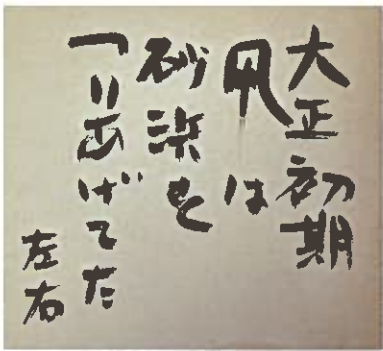 大正初期
凧は
砂浜を
つりあげてた
左右